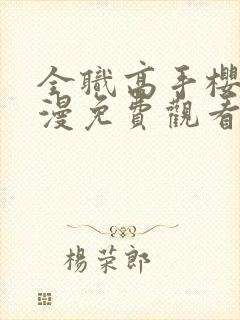 全職高手櫻
漫免費觀看
楊荣郎